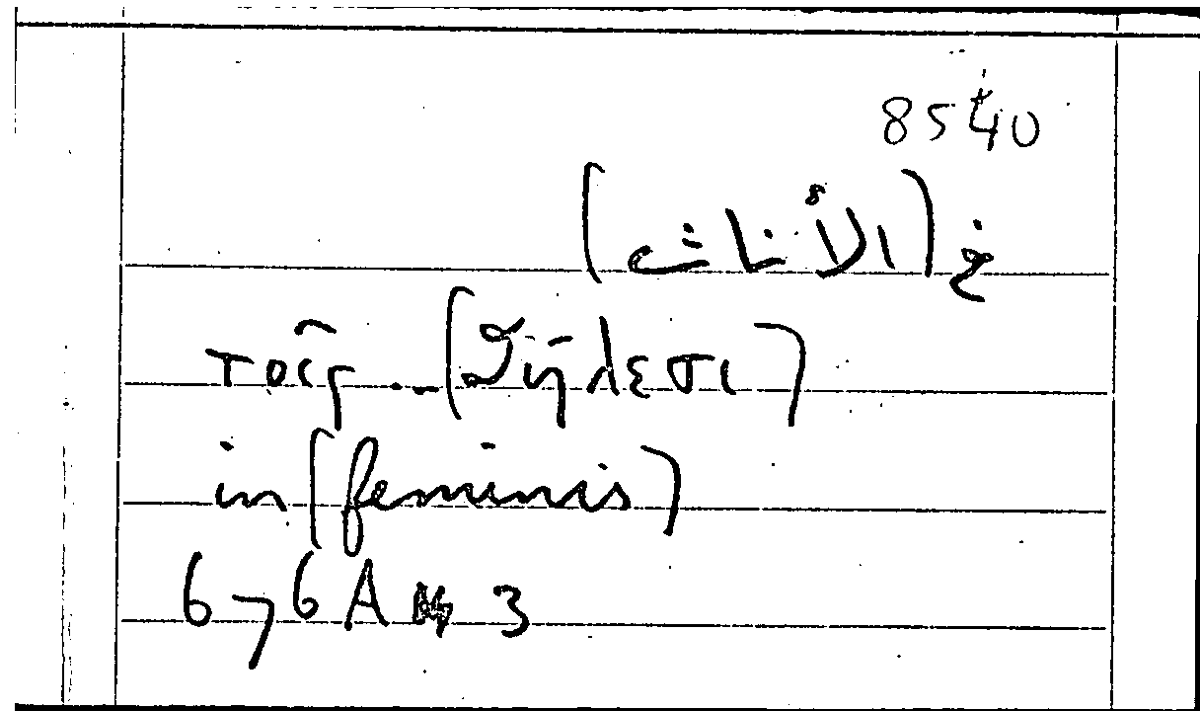 8540
في (الأناث)
τοῖς … (θήλεσι)
in (feminis)
676 A 3